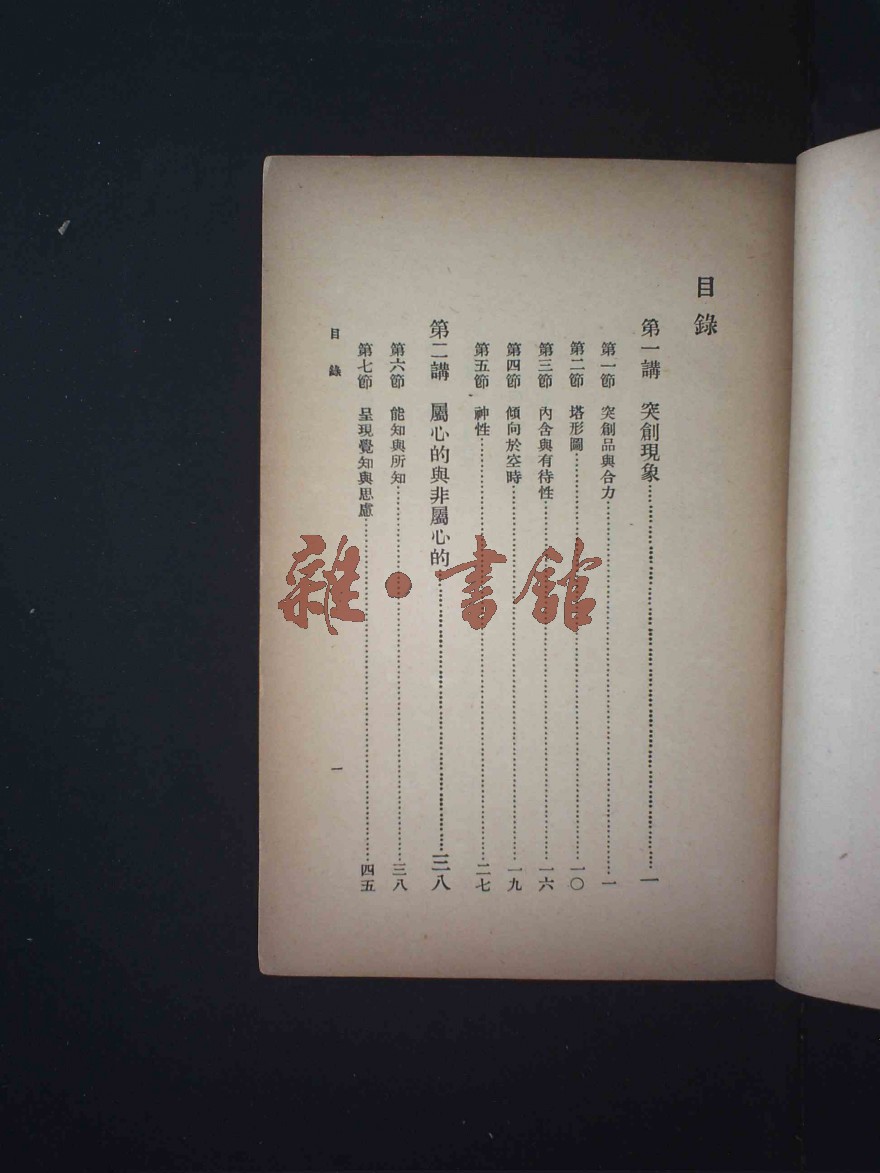 目錄
第一講　突創現象……一
第一節　突創品與合力……一
第二節　塔形圖……一〇
第三節　內含與有待性……一六
第四節　傾向於空時……一九
第五節　神性……二七
第二講　屬心的與非屬心的……三八
第六節　能知與所知……三八
第七節　呈現覺知與思慮……四五
目錄
一
雜·書館